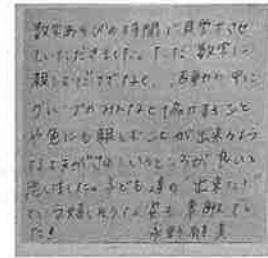 数字あそびの時間に見学させ
ていただきました。ただ数字に
親しむだけでなく、
グループのみんなと協力すること
や色にも親しむことが出来るよう
なところが良いと
思いました。子ども達の「出来た!」
という嬉しそうな姿も素敵でし
た!